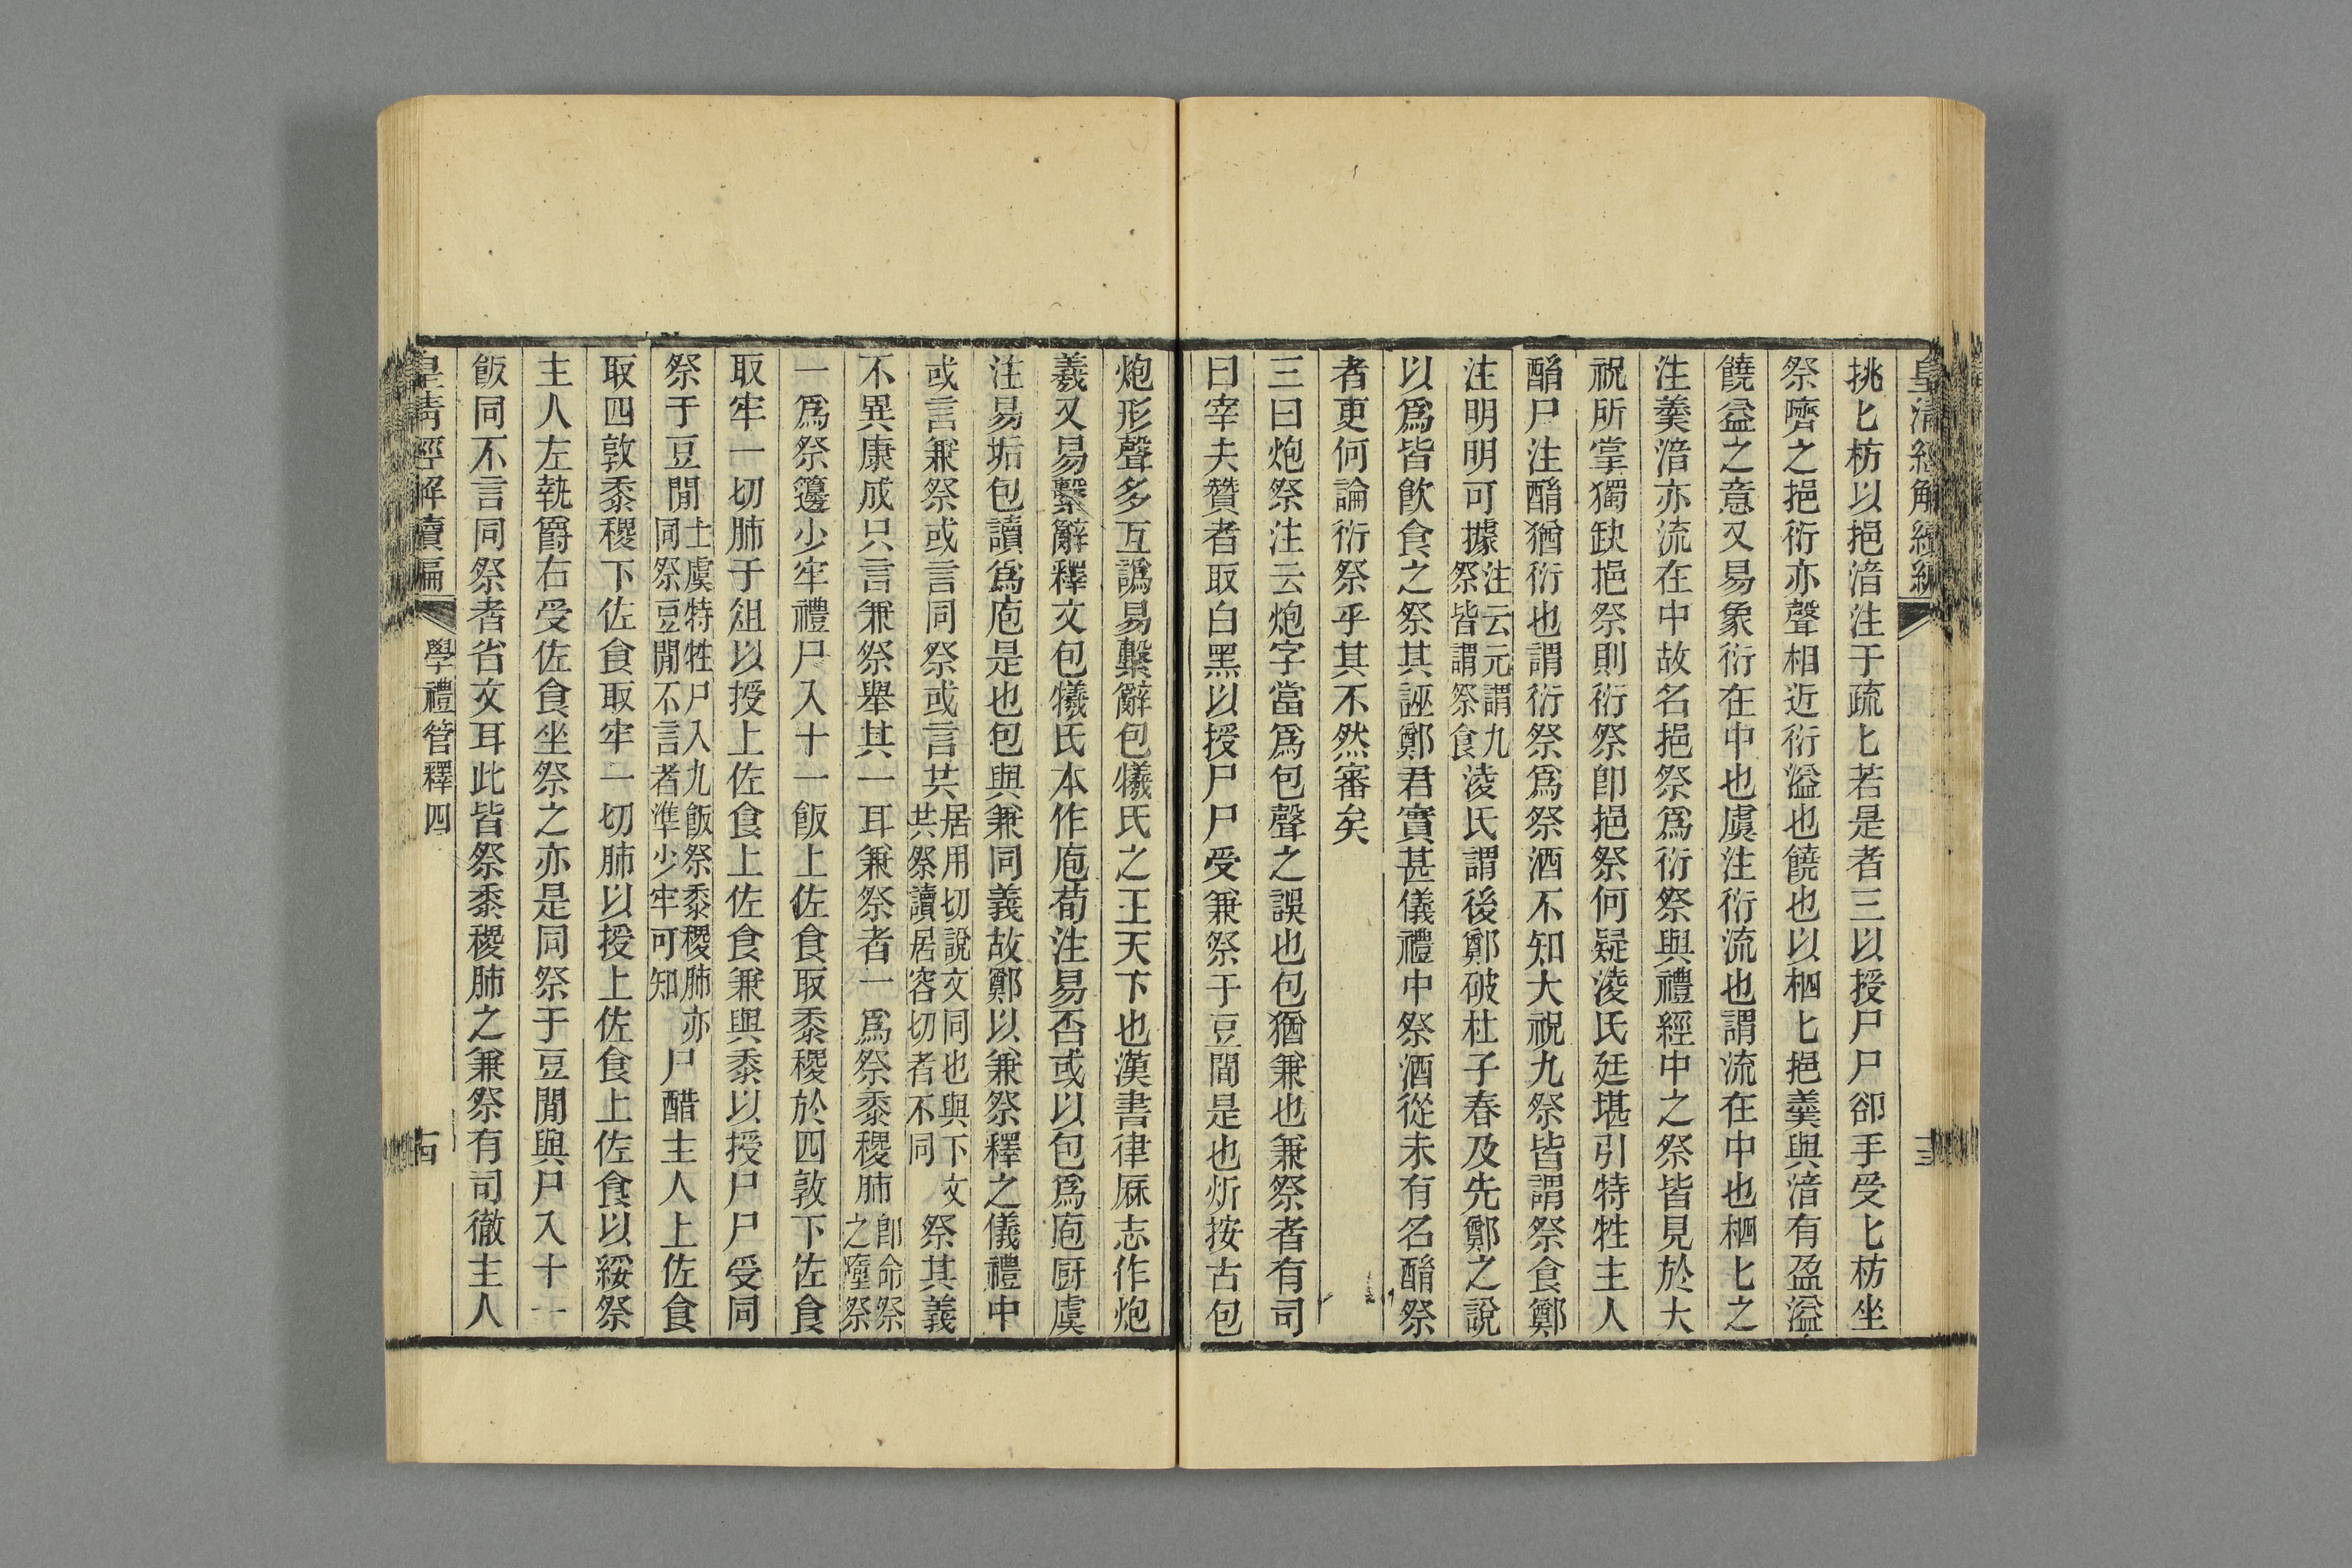 皇清經解續編
十三
挑匕枋以挹湆注于疏匕若是者三以授尸尸卻手受匕枋坐
祭嚌之挹衍亦聲相近衍溢也饒也以柶匕挹羹與湆有盈溢
饒益之意又易象衍在中也虞注衍流也謂流在中也柶匕之
注羹湆亦流在中故名挹祭爲衍祭與禮經中之祭皆見於大
祝所掌獨缺挹祭則衍祭卽挹祭何疑淩氏廷堪引特牲主人
酳尸注酳猶衍也謂衍祭爲祭酒不知大祝九祭皆謂祭食鄭
注明明可據注云元謂九祭皆謂祭食淩氏謂後鄭破杜子春及先鄭之說
以爲皆飮食之祭其誣鄭君實甚儀禮中祭酒從未有名酳祭
者更何論衍祭乎其不然審矣
三曰炮祭注云炮字當爲包聲之誤也包猶兼也兼祭者有司
曰宰夫贊者取白黑以授尸尸受兼祭于豆閒是也炘按古包
炮形聲多互譌易繫辭包犧氏之王天下也漢書律厤志作炮
羲又易繫辭釋文包犧氏本作庖荀注易否或以包爲庖厨虞
注易垢包讀爲庖是也包與兼同義故鄭以兼祭釋之儀禮中
或言兼祭或言同祭或言共居用切說文同也與下文共祭讀居容切者不同祭其義
不異康成只言兼祭舉其一耳兼祭者一爲祭黍稷肺卽命祭之墮祭
一爲祭籩少牢禮尸入十一飯上佐食取黍稷於四敦下佐食
取牢一切肺于俎以授上佐食上佐食兼與黍以授尸尸受同
祭于豆閒士虞特牲尸入九飯祭黍稷肺亦同祭豆閒不言者準少牢可知尸醋主人上佐食
取四敦黍稷下佐食取牢一切肺以授上佐食上佐食以綏祭
主人左執爵右受佐食坐祭之亦是同祭于豆閒與尸入十一
飯同不言同祭者省文耳此皆祭黍稷肺之兼祭有司徹主人
皇清經解續編
學禮管釋四
十四